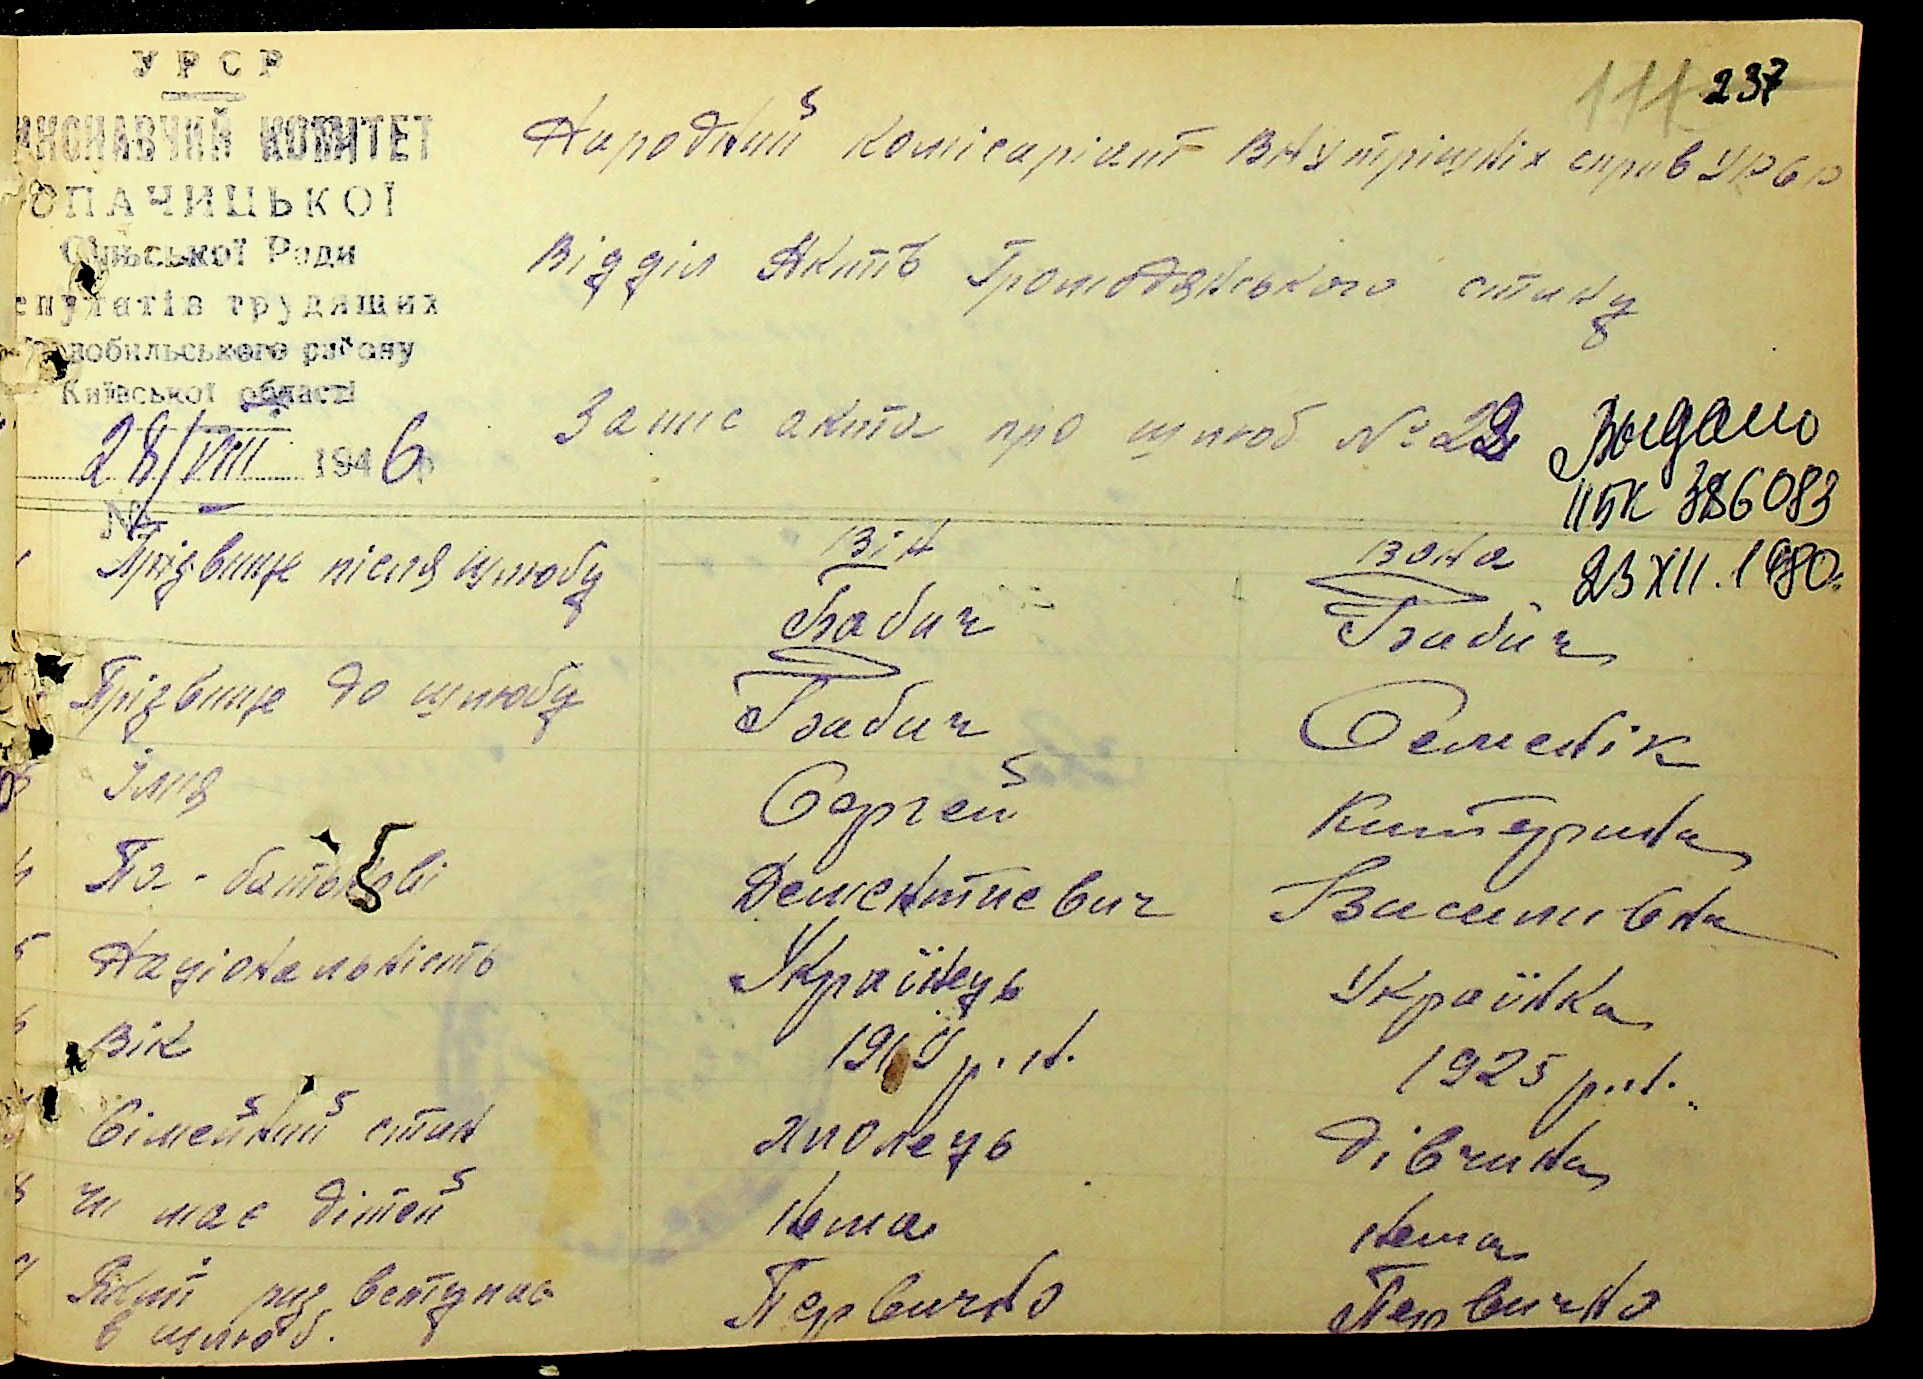 УРСР
111 237
ИКОНАВЧИЙ КОМІТЕТ
ОПАЧИЦЬКОЇ
Сільської Ради
епутатів трудящих
нобильського району
Київської області
28/VIII 1946
№ -
Народний Комісаріат Внутрішніх справ УРСР
Відділ Актів Громодянського стану
Запис акта про шлюб № 22
Выдано
ІІБК 386083
23 XII. 1980.
Він
Вона
Прізвище після шлюбу Бабич Бабич
Прізвище до шлюбу Бабич Семенік
Імя Сергей Катерина
4 По-батькові Дементиевич Василивна
5 Національність Українець Українка
6 Вік р.н. 1925 р.н.
Сімейний стан холець дівчина
8 Чи має дітей Нема Нема
9 раз вступає Первично Первично
в шлюб.